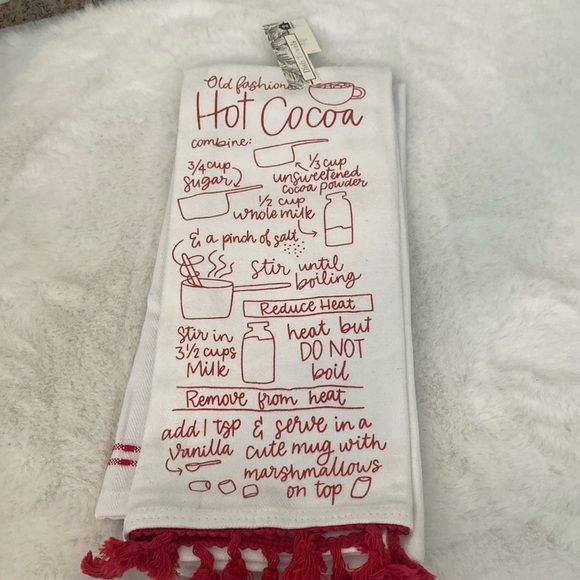 Old fashion
Hot Cocoa
combine:
3/4 cup
sugar
1/3 cup
unsweetened
cocoa powder
1/2 cup
whole milk
& a pinch of salt
Stir until
boiling
Reduce Heat
Stir in
3 1/2 cups
Milk
heat but
DO NOT
boil
Remove from heat
add 1 tsp
vanilla
& serve in a
cute mug with
marshmallows
on top